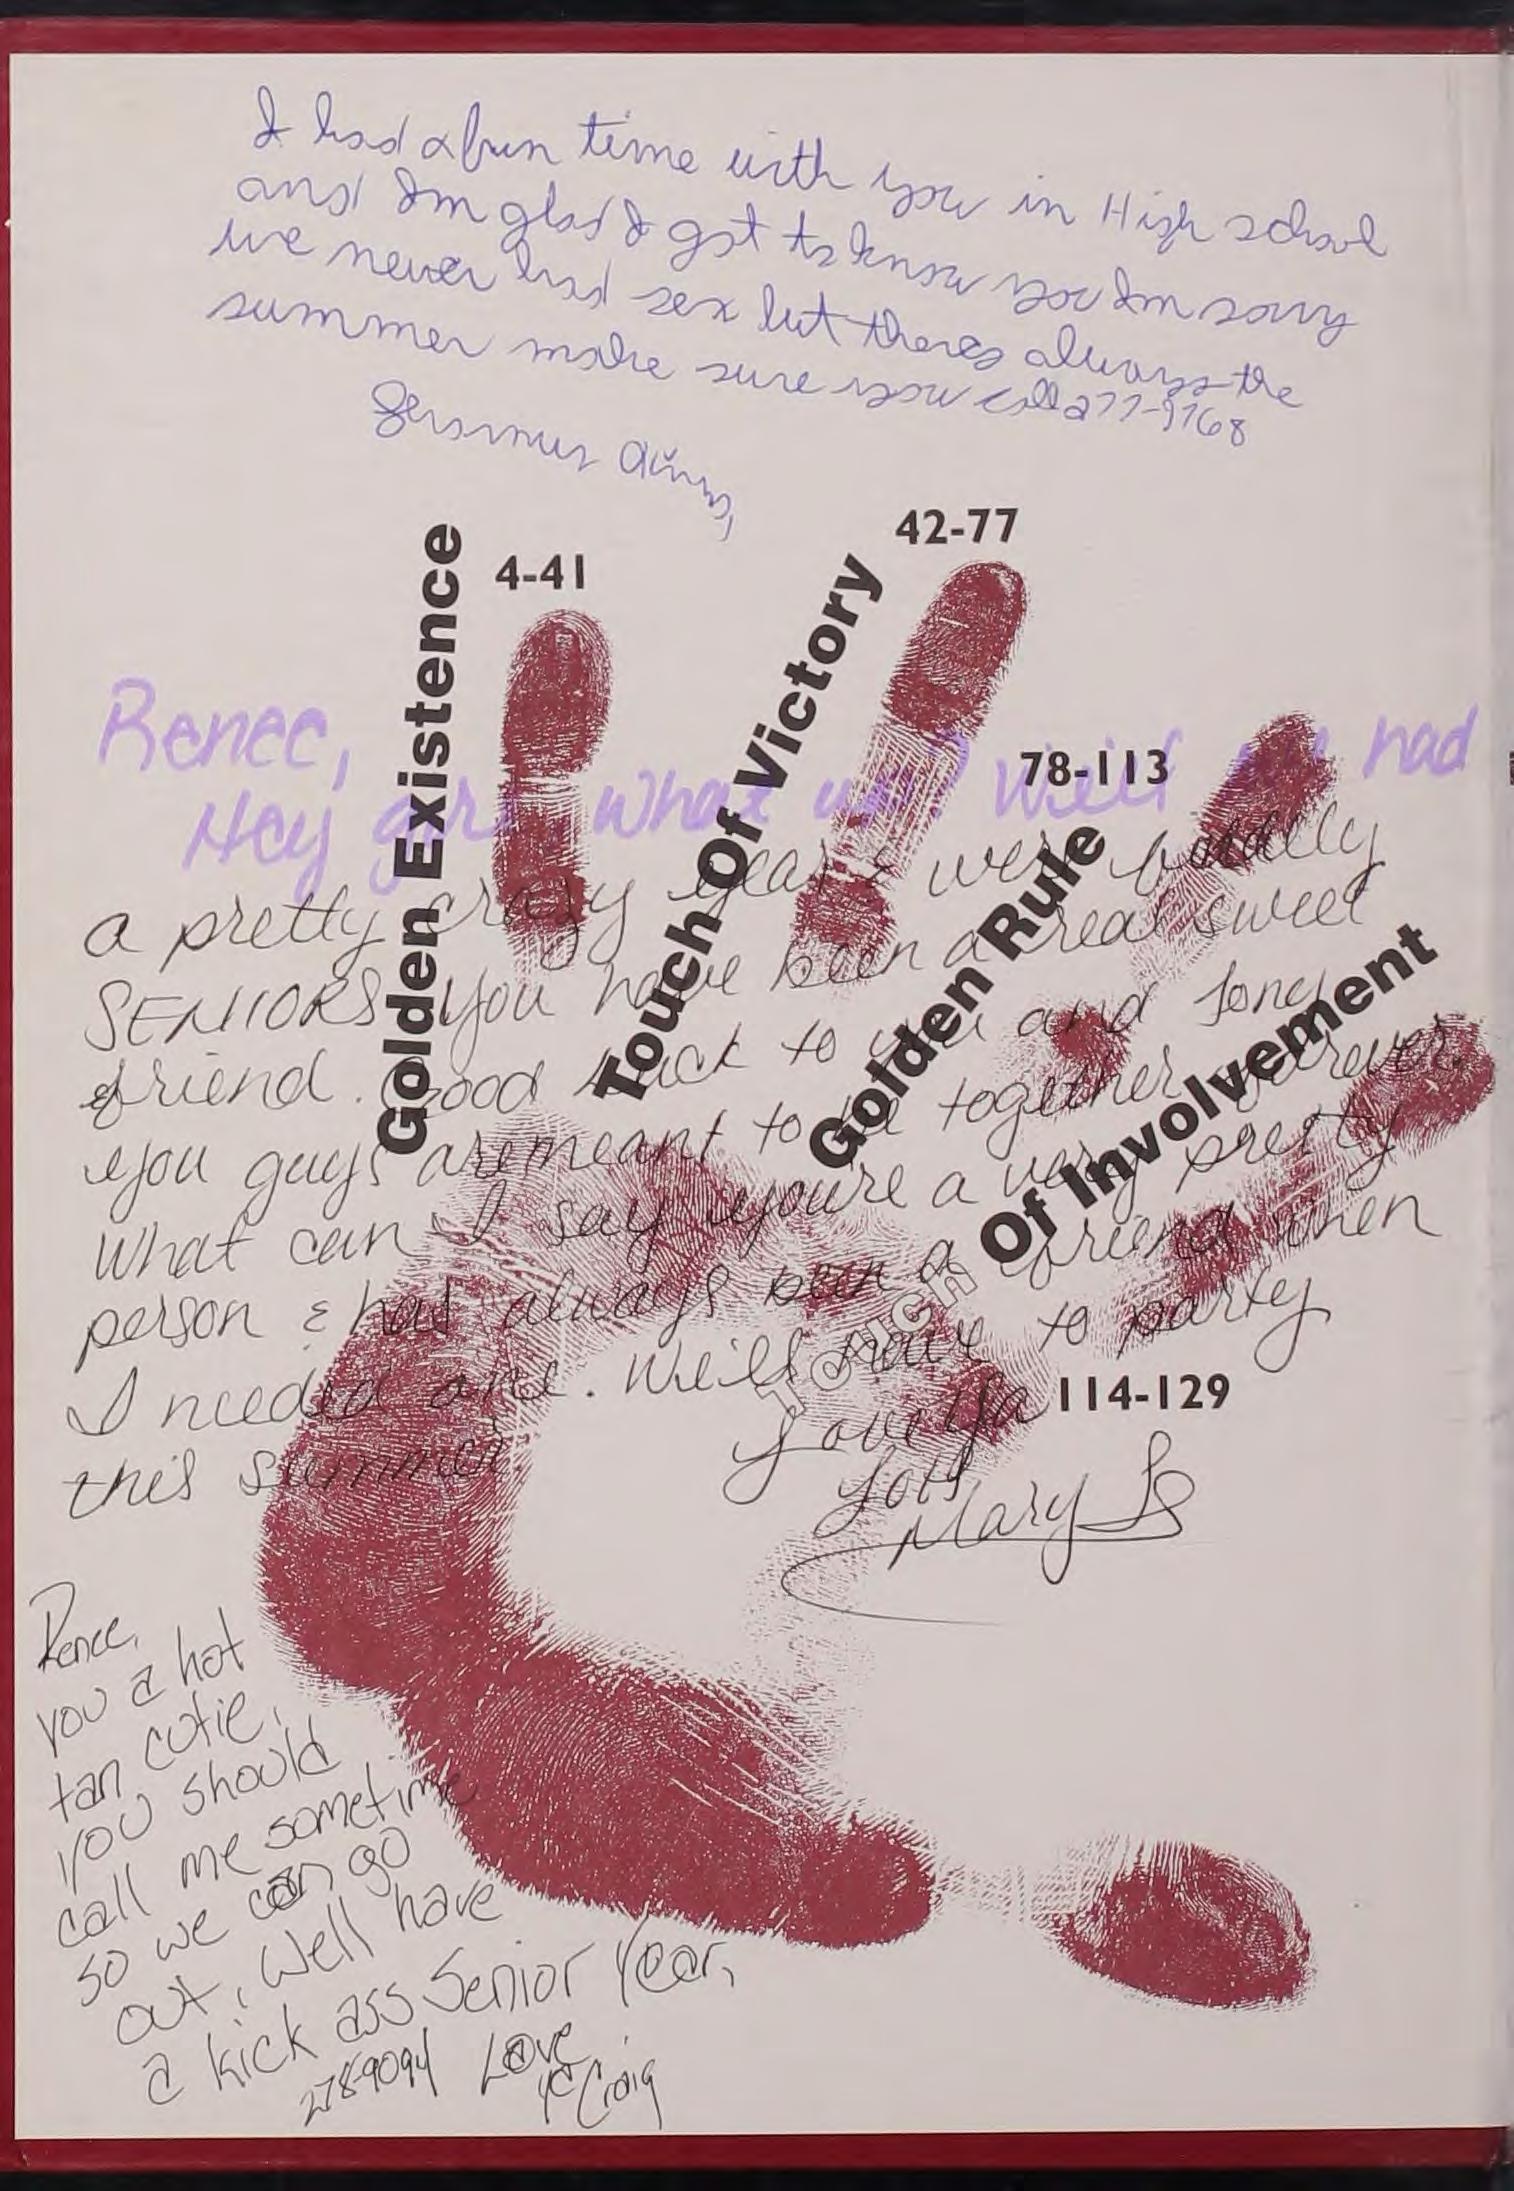 I had a fun time with you in High school
and Im glad I got to know you Im sorry
we never had sex but theres always the
summer make sure you call 277-9768
4-41
42-77
78-113
114-129
Golden Existence
Touch Of Victory
Golden Rule
TOUCH Of Involvement
Renee,
Hey girl what up? Well we had
a pretty crazy year & were finally
SENIORS. You have been a real sweet
friend. Good luck to you and Tony
you guys are meant to be together forever.
What can I say you're a very pretty
person & has always been a friend when
I needed one. We'll have to party
this summer.
Love Ya
Lots
Mary
Renee,
you a hot
tan cutie,
you should
call me sometime
so we can go
out, Well have
a kick ass Senior Year,
278-9094 Love
Craig